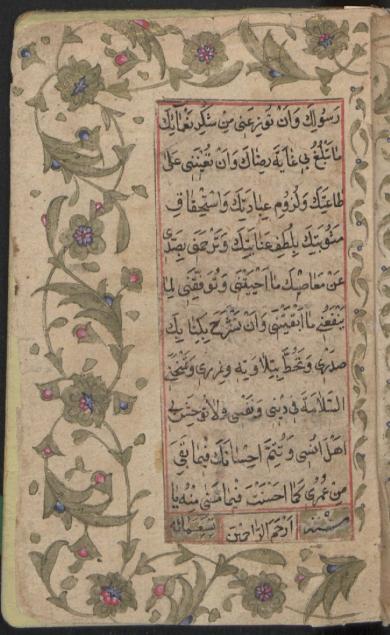 رَسُولِكَ وَاَنْ تُوزِعَنِي مِنْ شُكْرِ نَعْمَائِكَ
مَا تَبْلُغُ بِي غَايَةَ رِضَاكَ وَاَنْ تُعِينَنِي عَلَى
طَاعَتِكَ وَلُزُومِ عِبَادَتِكَ وَاسْتِحْقَاقِ
مَثُوبَتِكَ بِلُطْفِ عِنَايَتِكَ وَتَرْحَمَنِي بِصَدِّي
عَنْ مَعَاصِيكَ مَا اَحْيَيْتَنِي وَتُوَفِّقَنِي لِمَا
يَنْفَعُنِي مَا اَبْقَيْتَنِي وَاَنْ تَشْرَحَ بِكِتَابِكَ
صَدْرِي وَتَحُطَّ بِتِلَاوَتِهِ وِزْرِي وَتَمْنَحَنِي
السَّلَامَةَ فِي دِينِي وَنَفْسِي وَلَا تُوحِشَ بِي
اَهْلَ اُنْسِي وَتُتِمَّ اِحْسَانَكَ فِيمَا بَقِيَ
مِنْ عُمْرِي كَمَا اَحْسَنْتَ فِيمَا مَضَى مِنْهُ يَا
اَرْحَمَ الرَّاحِمِينَ